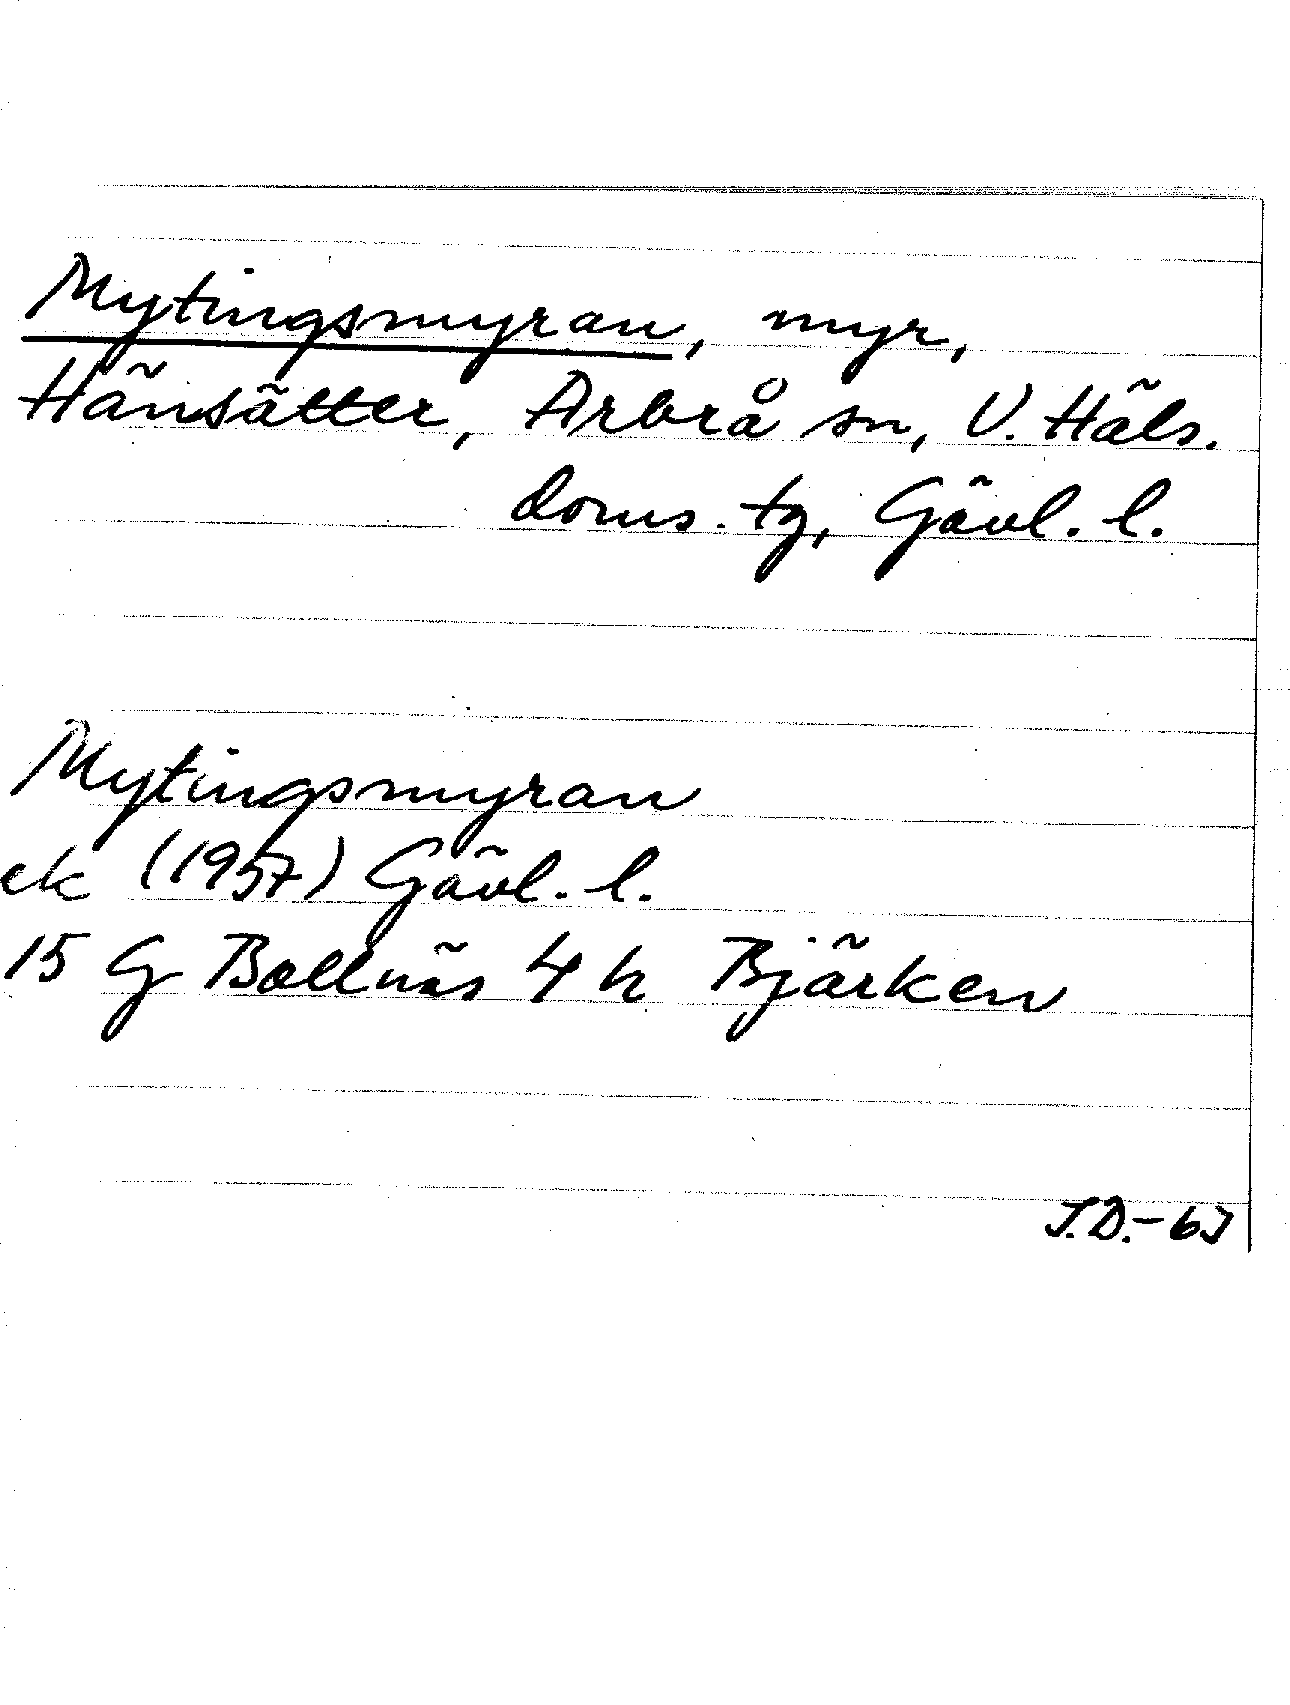 Mytingsmyran, myr,
Hänsätter, Arbrå sn, V. Häls.
doms. tg, Gävl. l.
Mytingsmyran
ek (1957) Gävl. l.
15 G Bollnäs 4 h Bjärken